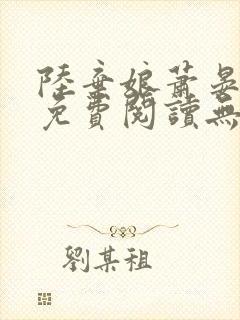 陸棄娘蕭晏
免費閱讀無
劉某祖